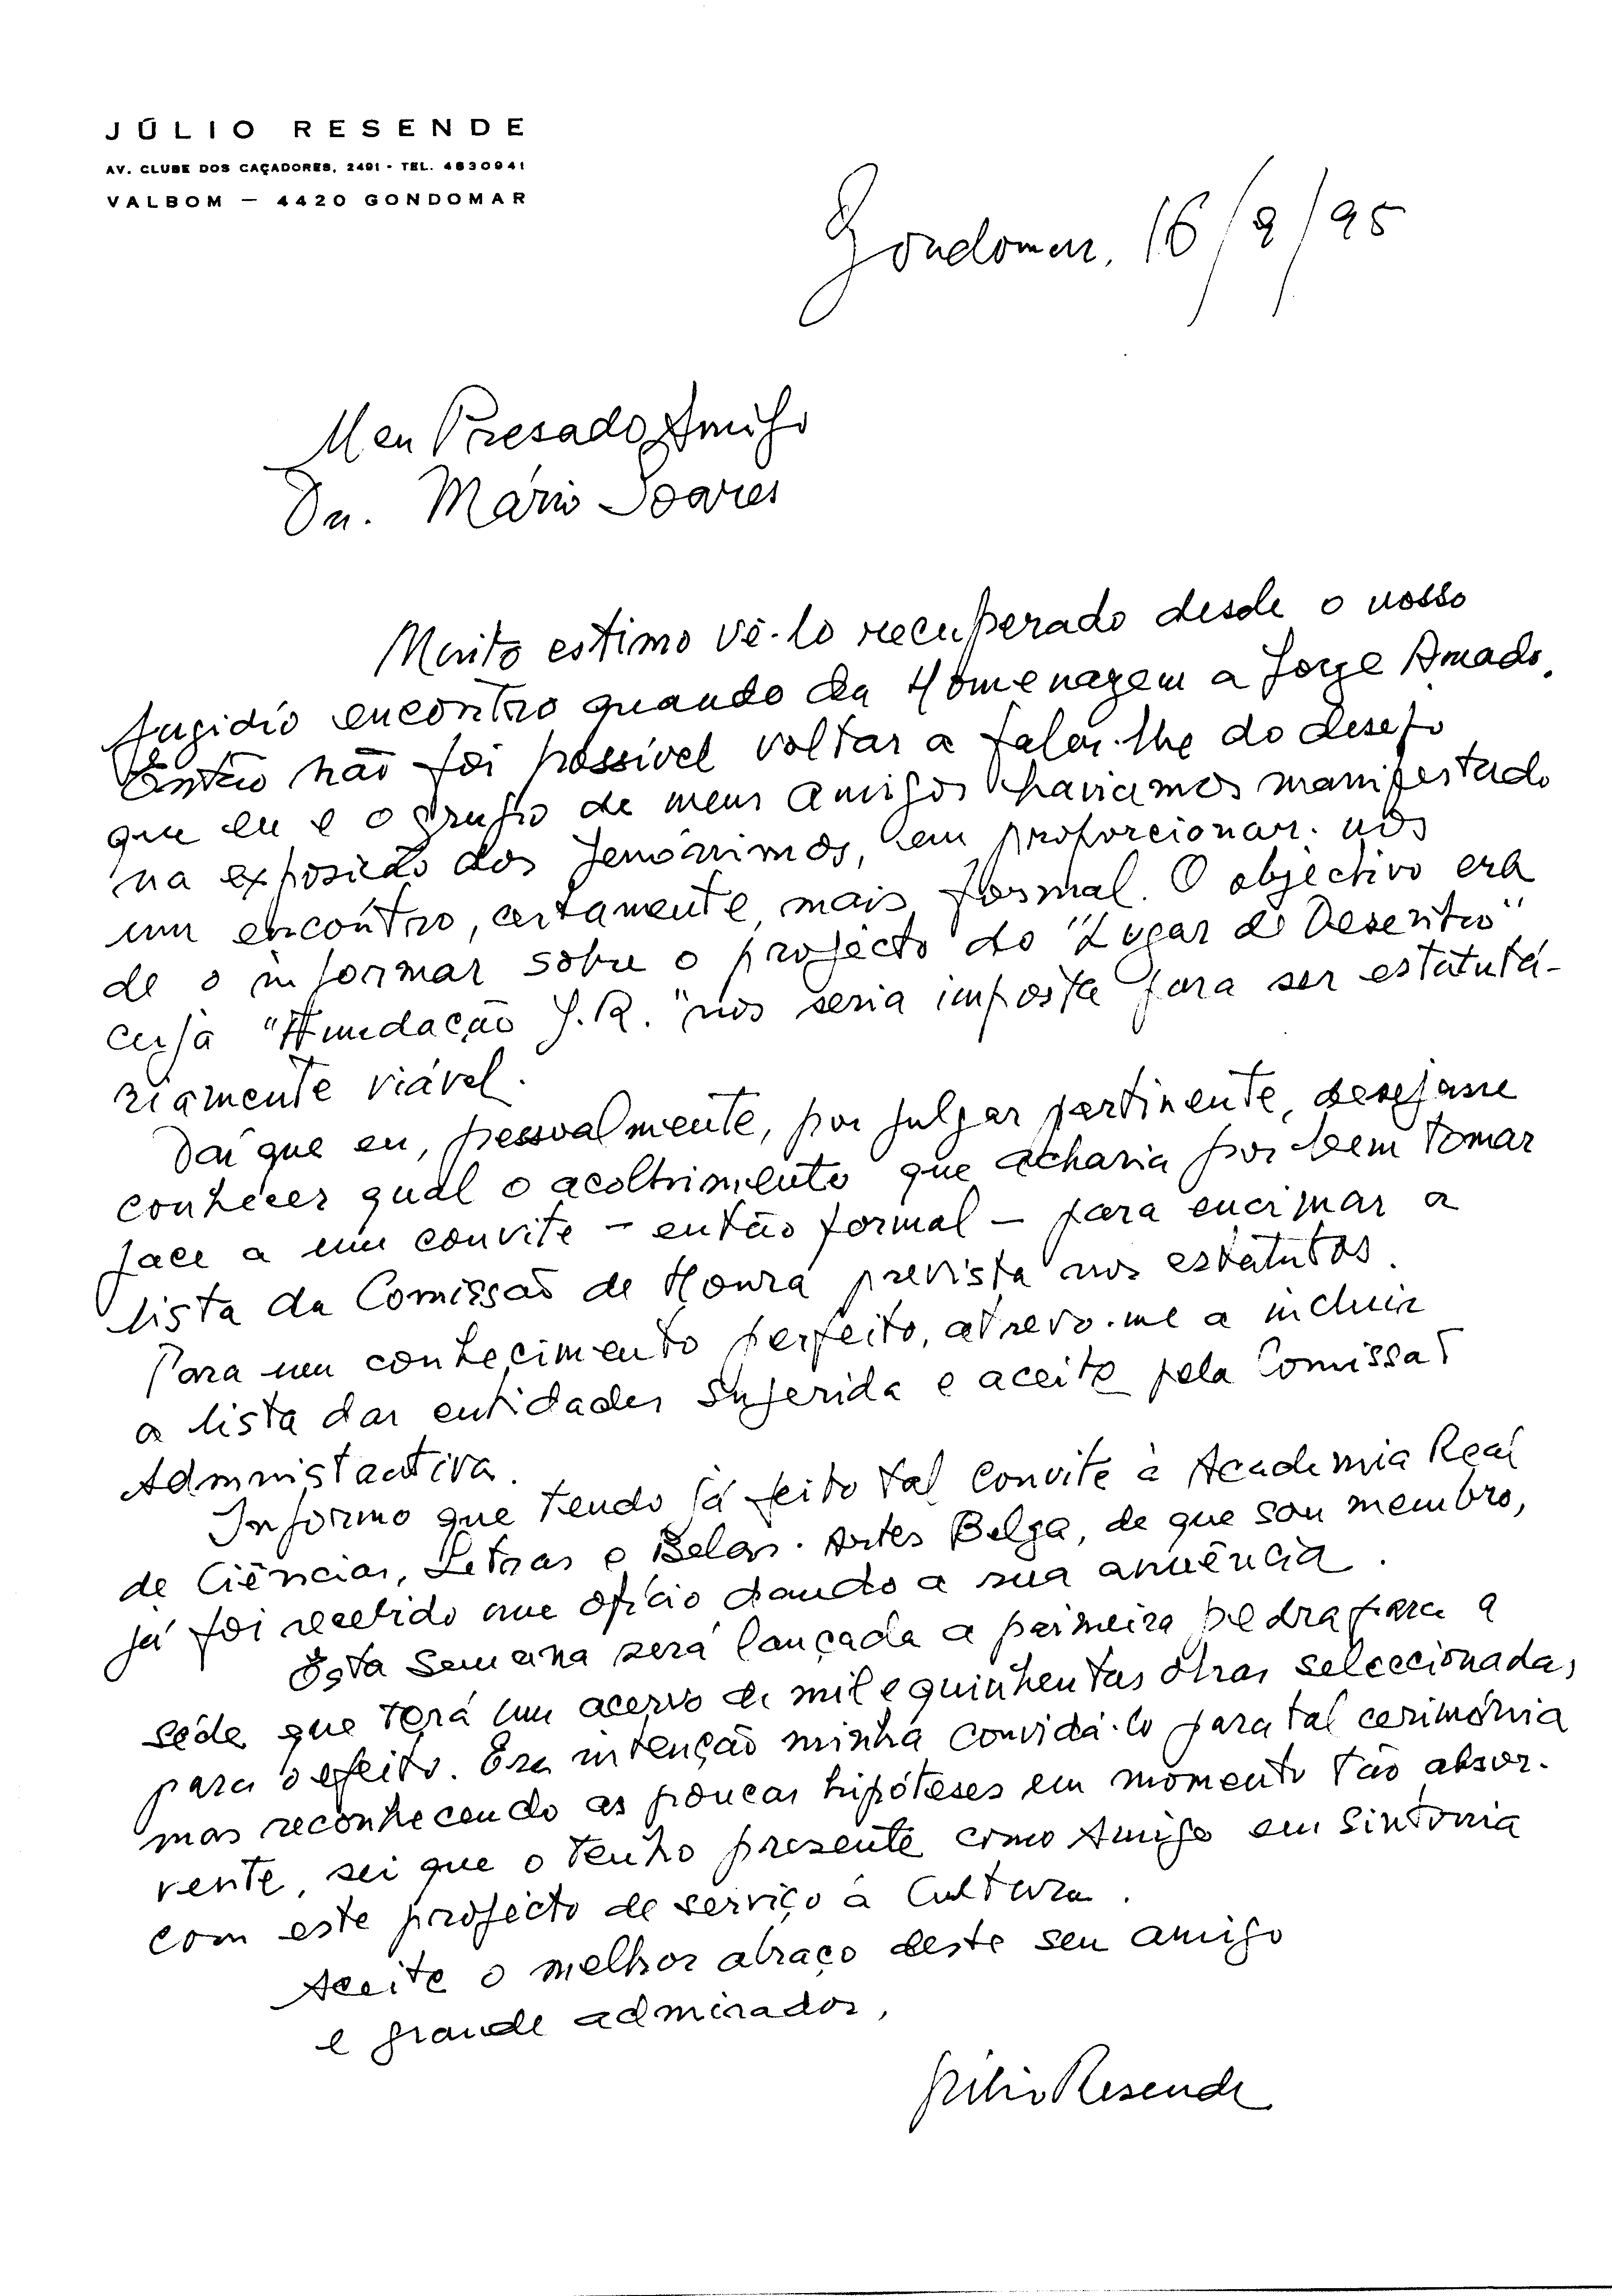 JÚLIO RESENDE
AV. CLUBE DOS CAÇADORES, 2491 - TEL. 4630941
VALBOM — 4420 GONDOMAR
Gondomar, 16/9/95
Meu Presado Amigo
Dr. Mário Soares
Muito estimo vê-lo recuperado desde o nosso
fugidío encontro quando da Homenagem a Jorge Amado.
Então não foi possível voltar a falar-lhe do desejo
que eu e o grupo de meus amigos haviamos manifestado
na exposição dos Jerónimos, em proporcionar-nos
um encontro, certamente mais formal. O objectivo era
de o informar sobre o projecto do "Lugar do Desenho"
cuja "Fundação J.R." nos seria imposta para ser estatutá-
riamente viável.
Daí que eu, pessoalmente, por julgar pertinente, desejasse
conhecer qual o acolhimento que acharia por bem tomar
face a um convite - então formal - para encimar a
lista da Comissão de Honra prevista nos estatutos.
Para um conhecimento perfeito, atrevo-me a incluir
a lista das entidades sugerida e aceite pela Comissão
Administrativa.
Informo que tendo já feito tal convite à Academia Real
de Ciências, Letras e Belas-Artes Belga, de que sou membro,
já foi recebido um ofício dando a sua anuência.
Esta semana será lançada a primeira pedra para a
séde que terá um acervo de mil e quinhentas obras seleccionadas
para o efeito. Era intenção minha convidá-lo para tal cerimónia
mas reconhecendo as poucas hipóteses em momento tão absor-
vente, sei que o tenho presente como Amigo em sintonia
com este projécto de serviço à Cultura.
Aceite o melhor abraço deste seu amigo
e grande admirador,
Júlio Resende